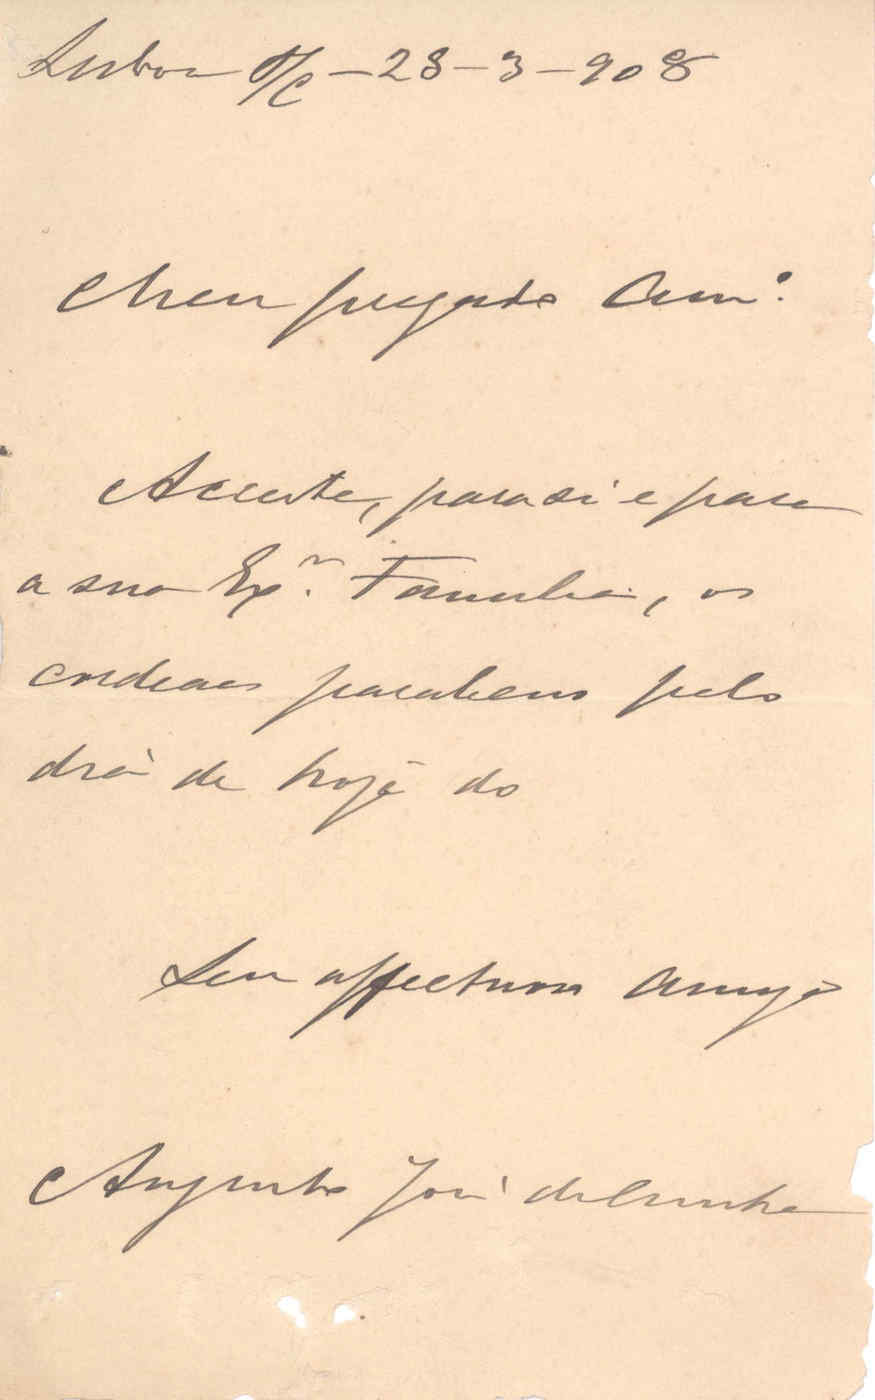 Lisboa S/C – 23 – 3 – 908
Meu presado Am.º
Acceite, para si e para
a sua Ex.ma Familia, os
cordeaes parabens pelo
dia de hoje do
Seu affectuoso amigo
Augusto José da Cunha